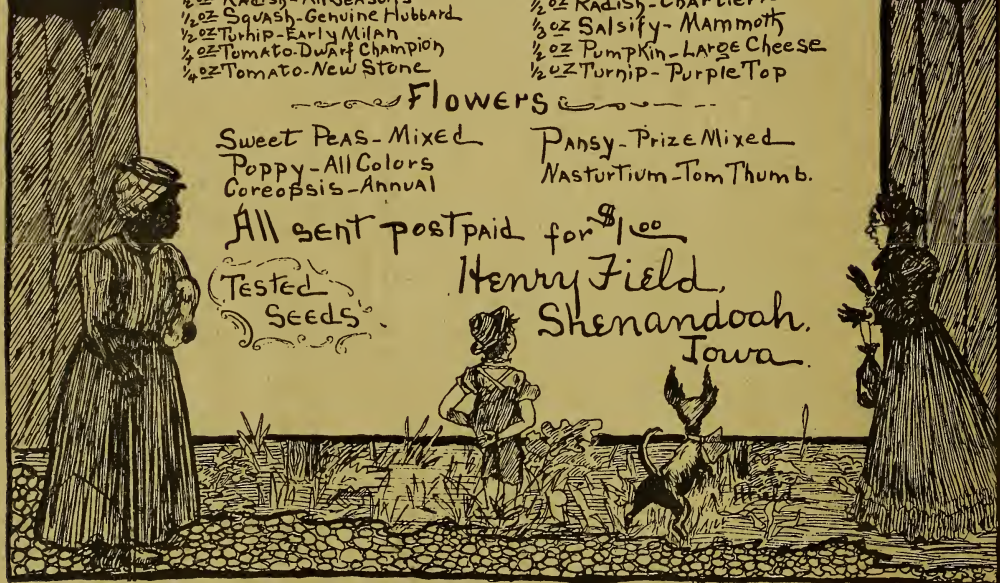 ½ oz Radish-All Seasons
½ oz Squash-Genuine Hubbard
½ oz Turnip-Early Milan
¼ oz Tomato-Dwarf Champion
¼ oz Tomato-New Stone
½ oz Radish-Chartier
⅓ oz Salsify-Mammoth
½ oz Pumpkin-Large Cheese
½ oz Turnip-Purple Top
Flowers
Sweet Peas-Mixed
Poppy-All Colors
Coreopsis-Annual
Pansy-Prize Mixed
Nasturtium-Tom Thumb.
All sent postpaid for $1.00
Tested
Seeds
Henry Field,
Shenandoah.
Iowa